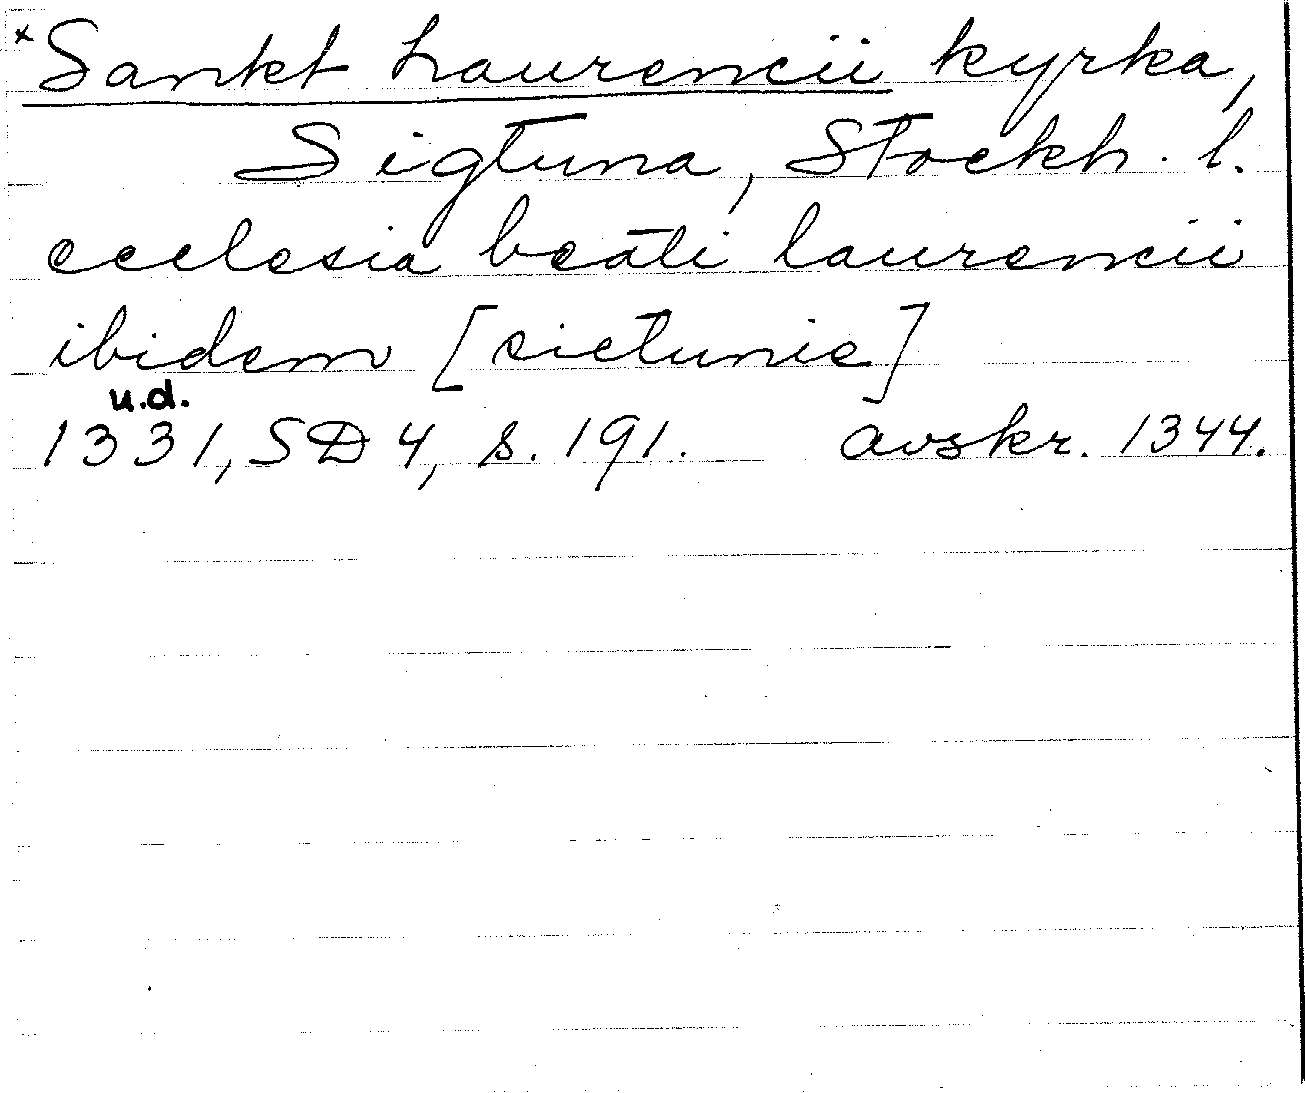 ×Sankt Laurencii kyrka,
Sigtuna, Stockh. l.
ecclesia beati laurencii
ibidem [sictunie]
u.d.
1331, SD 4, s. 191. avskr. 1344.